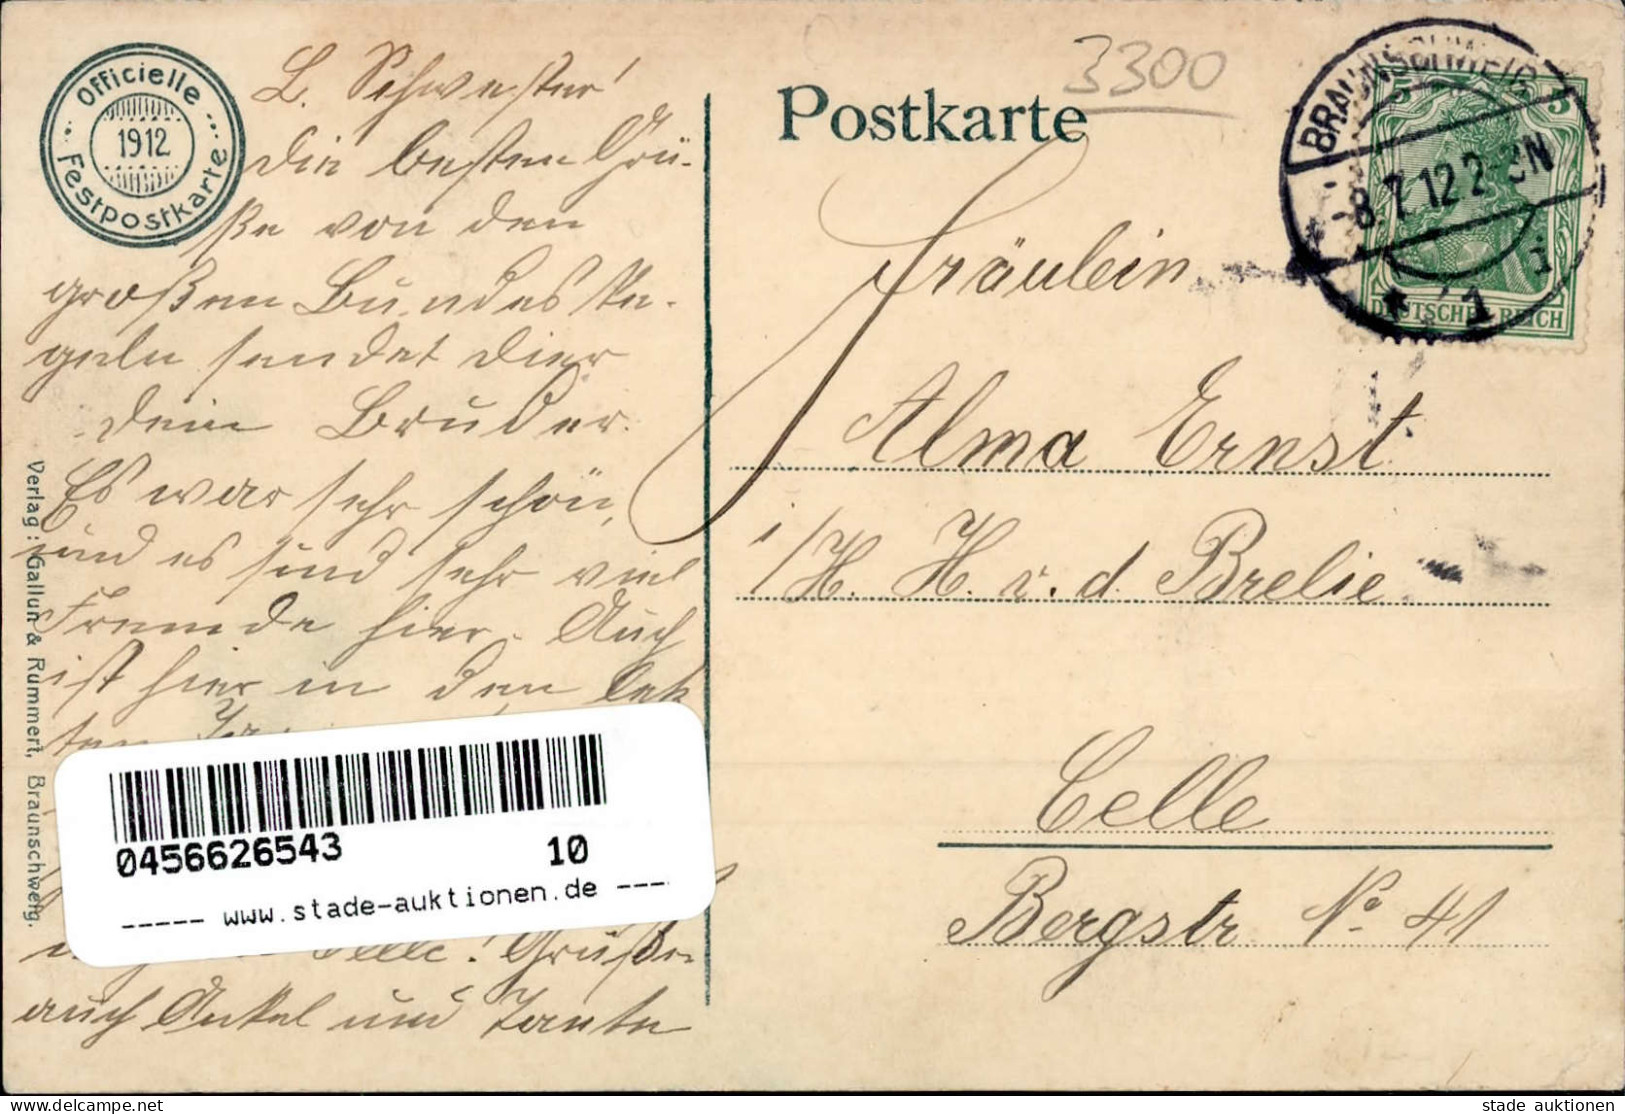 Officielle
1912
Festpostkarte
Postkarte
3300
BRAUNSCHWEIG
-8.7.12 2-3N
* 1 i
5 5
DEUTSCHES REICH
L. Schwester!
Die besten Grü-
ße von den
großen Bundes Ke-
geln sendet dier
dein Bruder.
Es war sehr schön,
und es sind sehr viel
Fremde hier. Auch
ist hier in den letz
ten
Celle! Grüße
auch Onkel und Tante
Fräulein
Alma Ernst
i/H. H. v. d. Brelie
Celle
Bergstr. No 41
Verlag: Gallun & Rummert, Braunschweig.
0456626543 10
----- www.stade-auktionen.de ----
www.delcampe.net
stade auktionen